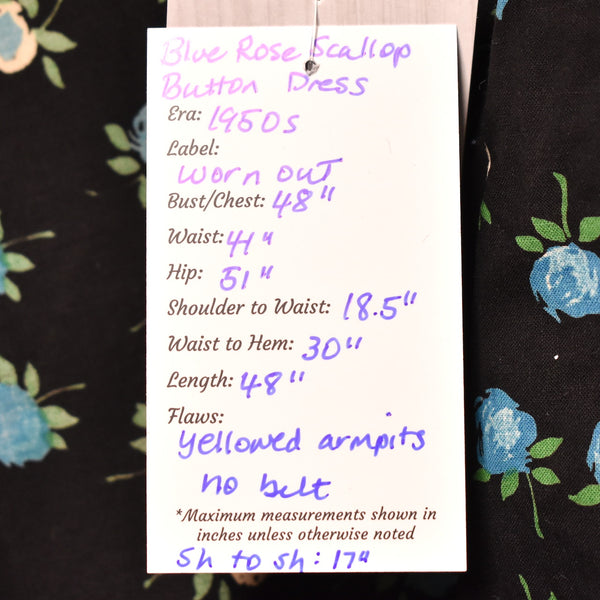 Blue Rose Scallop
Button Dress
Era: 1950s
Label:
worn out
Bust/Chest: 48"
Waist: 41"
Hip: 51"
Shoulder to Waist: 18.5"
Waist to Hem: 30"
Length: 48"
Flaws:
yellowed armpits
no belt
*Maximum measurements shown in
inches unless otherwise noted
Sh to sh: 17"